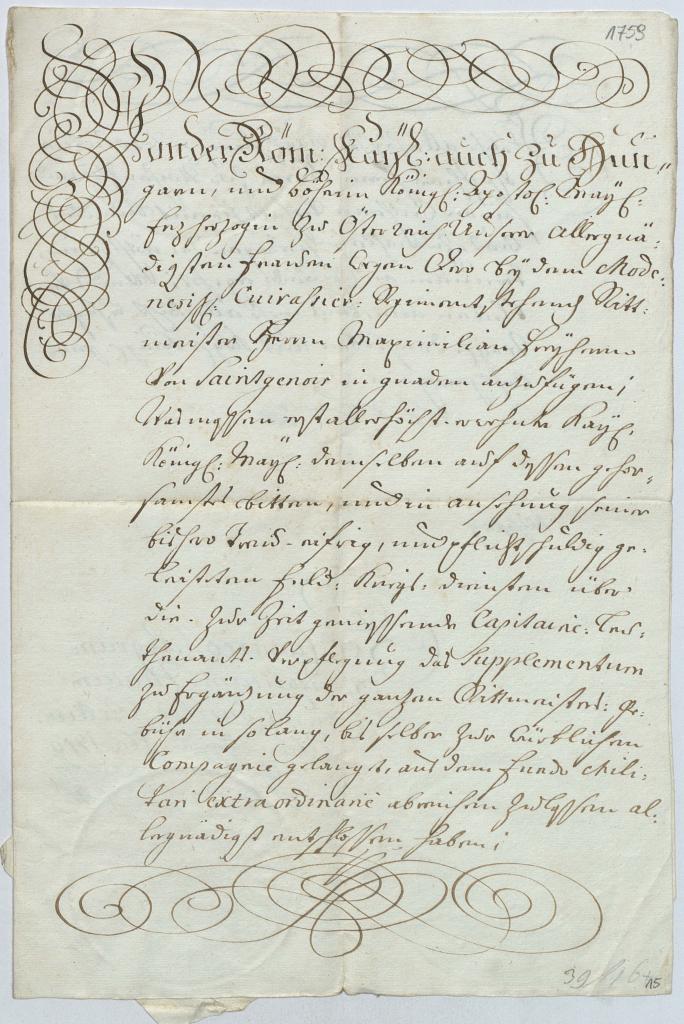 1759
Von der Röm: Kaÿß: auch zu Hun„
garn, und böheim Königl: Apostol: Maÿ:
Erzherzogin zu Österreich Unserer Allergnä-
digsten Frauen wegen dero beÿ dem Mode-
nesiß: Cuirassier-Regiment stehend Ritt-
meister Herrn Maximilian Freÿherrn
von Saintgenois in gnaden anzufügen;
Was massen erst allerhöchst-erwehnte Kaÿ:
Königl: Maÿ: demselben auf dessen gehor-
samstes bitten, und in ansehung seiner
bishero treu-eifrig, und pflichtschuldig ge-
leisteten Feld-Kriegs-diensten über
die zur Zeit geniessende Capitaine-Leu-
thenants-Verpflegung das Supplementum
zu Ergänzung der ganzen Rittmeisters-ge-
bühr in so lang, bis selber zur würklichen
Compagnie gelangt, aus dem Fundo Mili-
tari extraordinarie abreichen zu lassen al-
lergnädigst entschlossen haben;
39
15